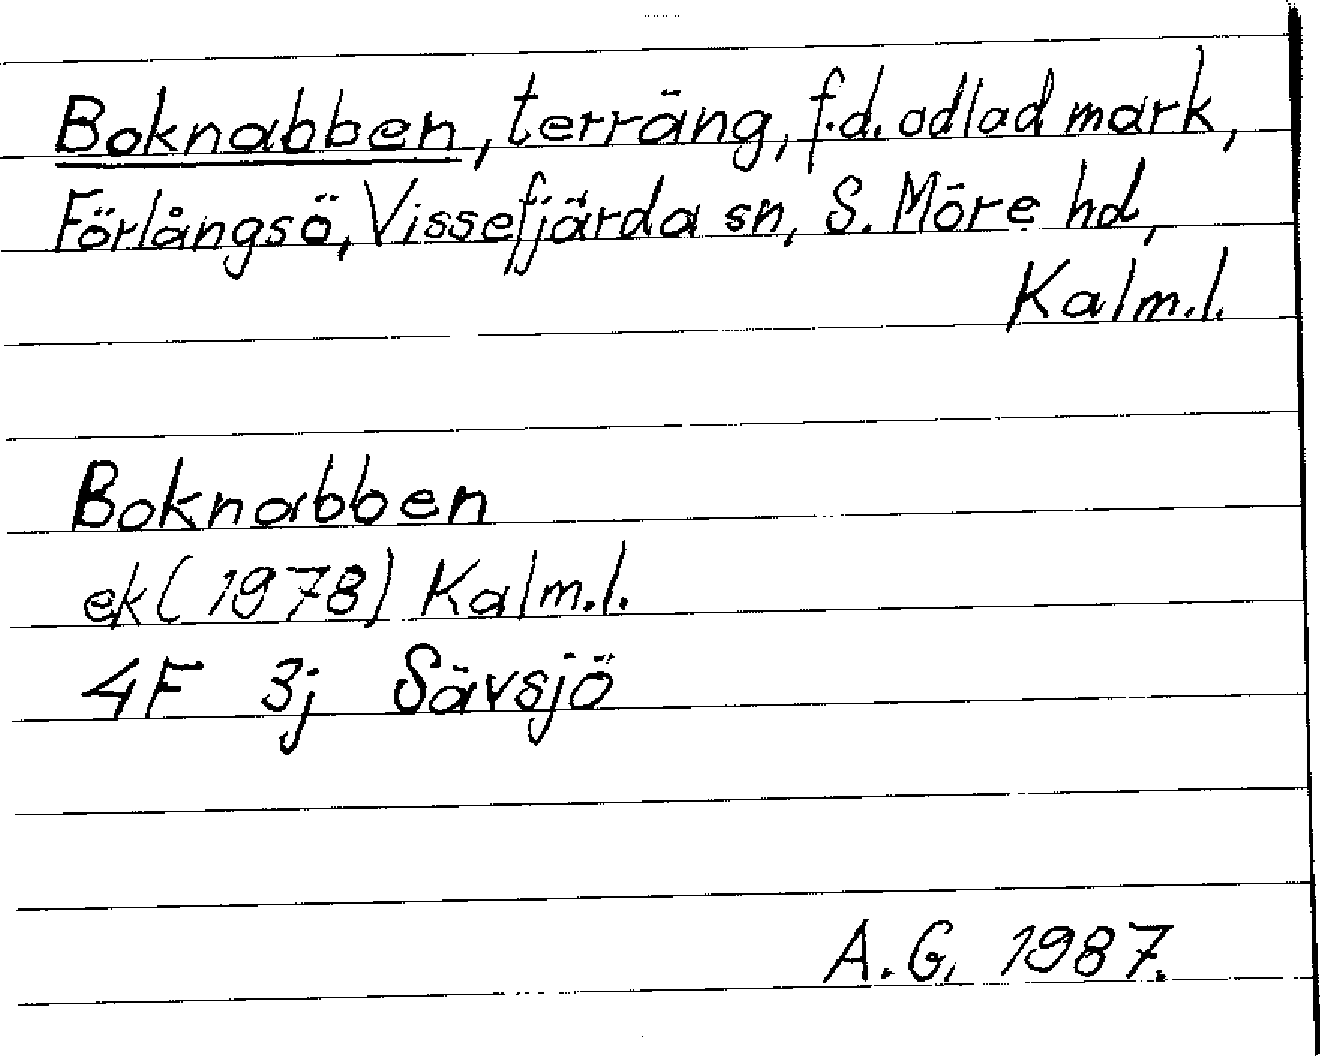 Boknabben, terräng, f.d. odlad mark,
Förlångsö, Vissefjärda sn, S. Möre hd,
Kalm.l.
Boknabben
ek (1978) Kalm.l.
4F 3j Sävsjö
A.G. 1987.